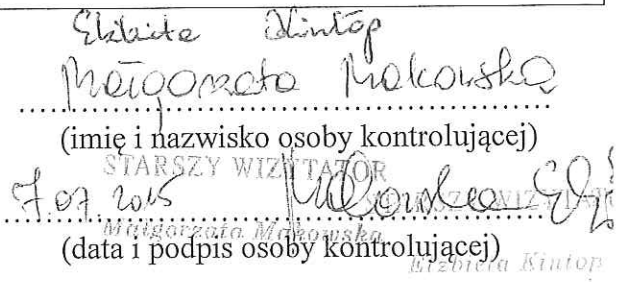 Elżbieta Kintop
Małgorzata Makowska
(imię i nazwisko osoby kontrolującej)
STARSZY WIZYTATOR
7.07.2015 Makowska
Małgorzata Makowska
(data i podpis osoby kontrolującej)
Elżbieta Kintop